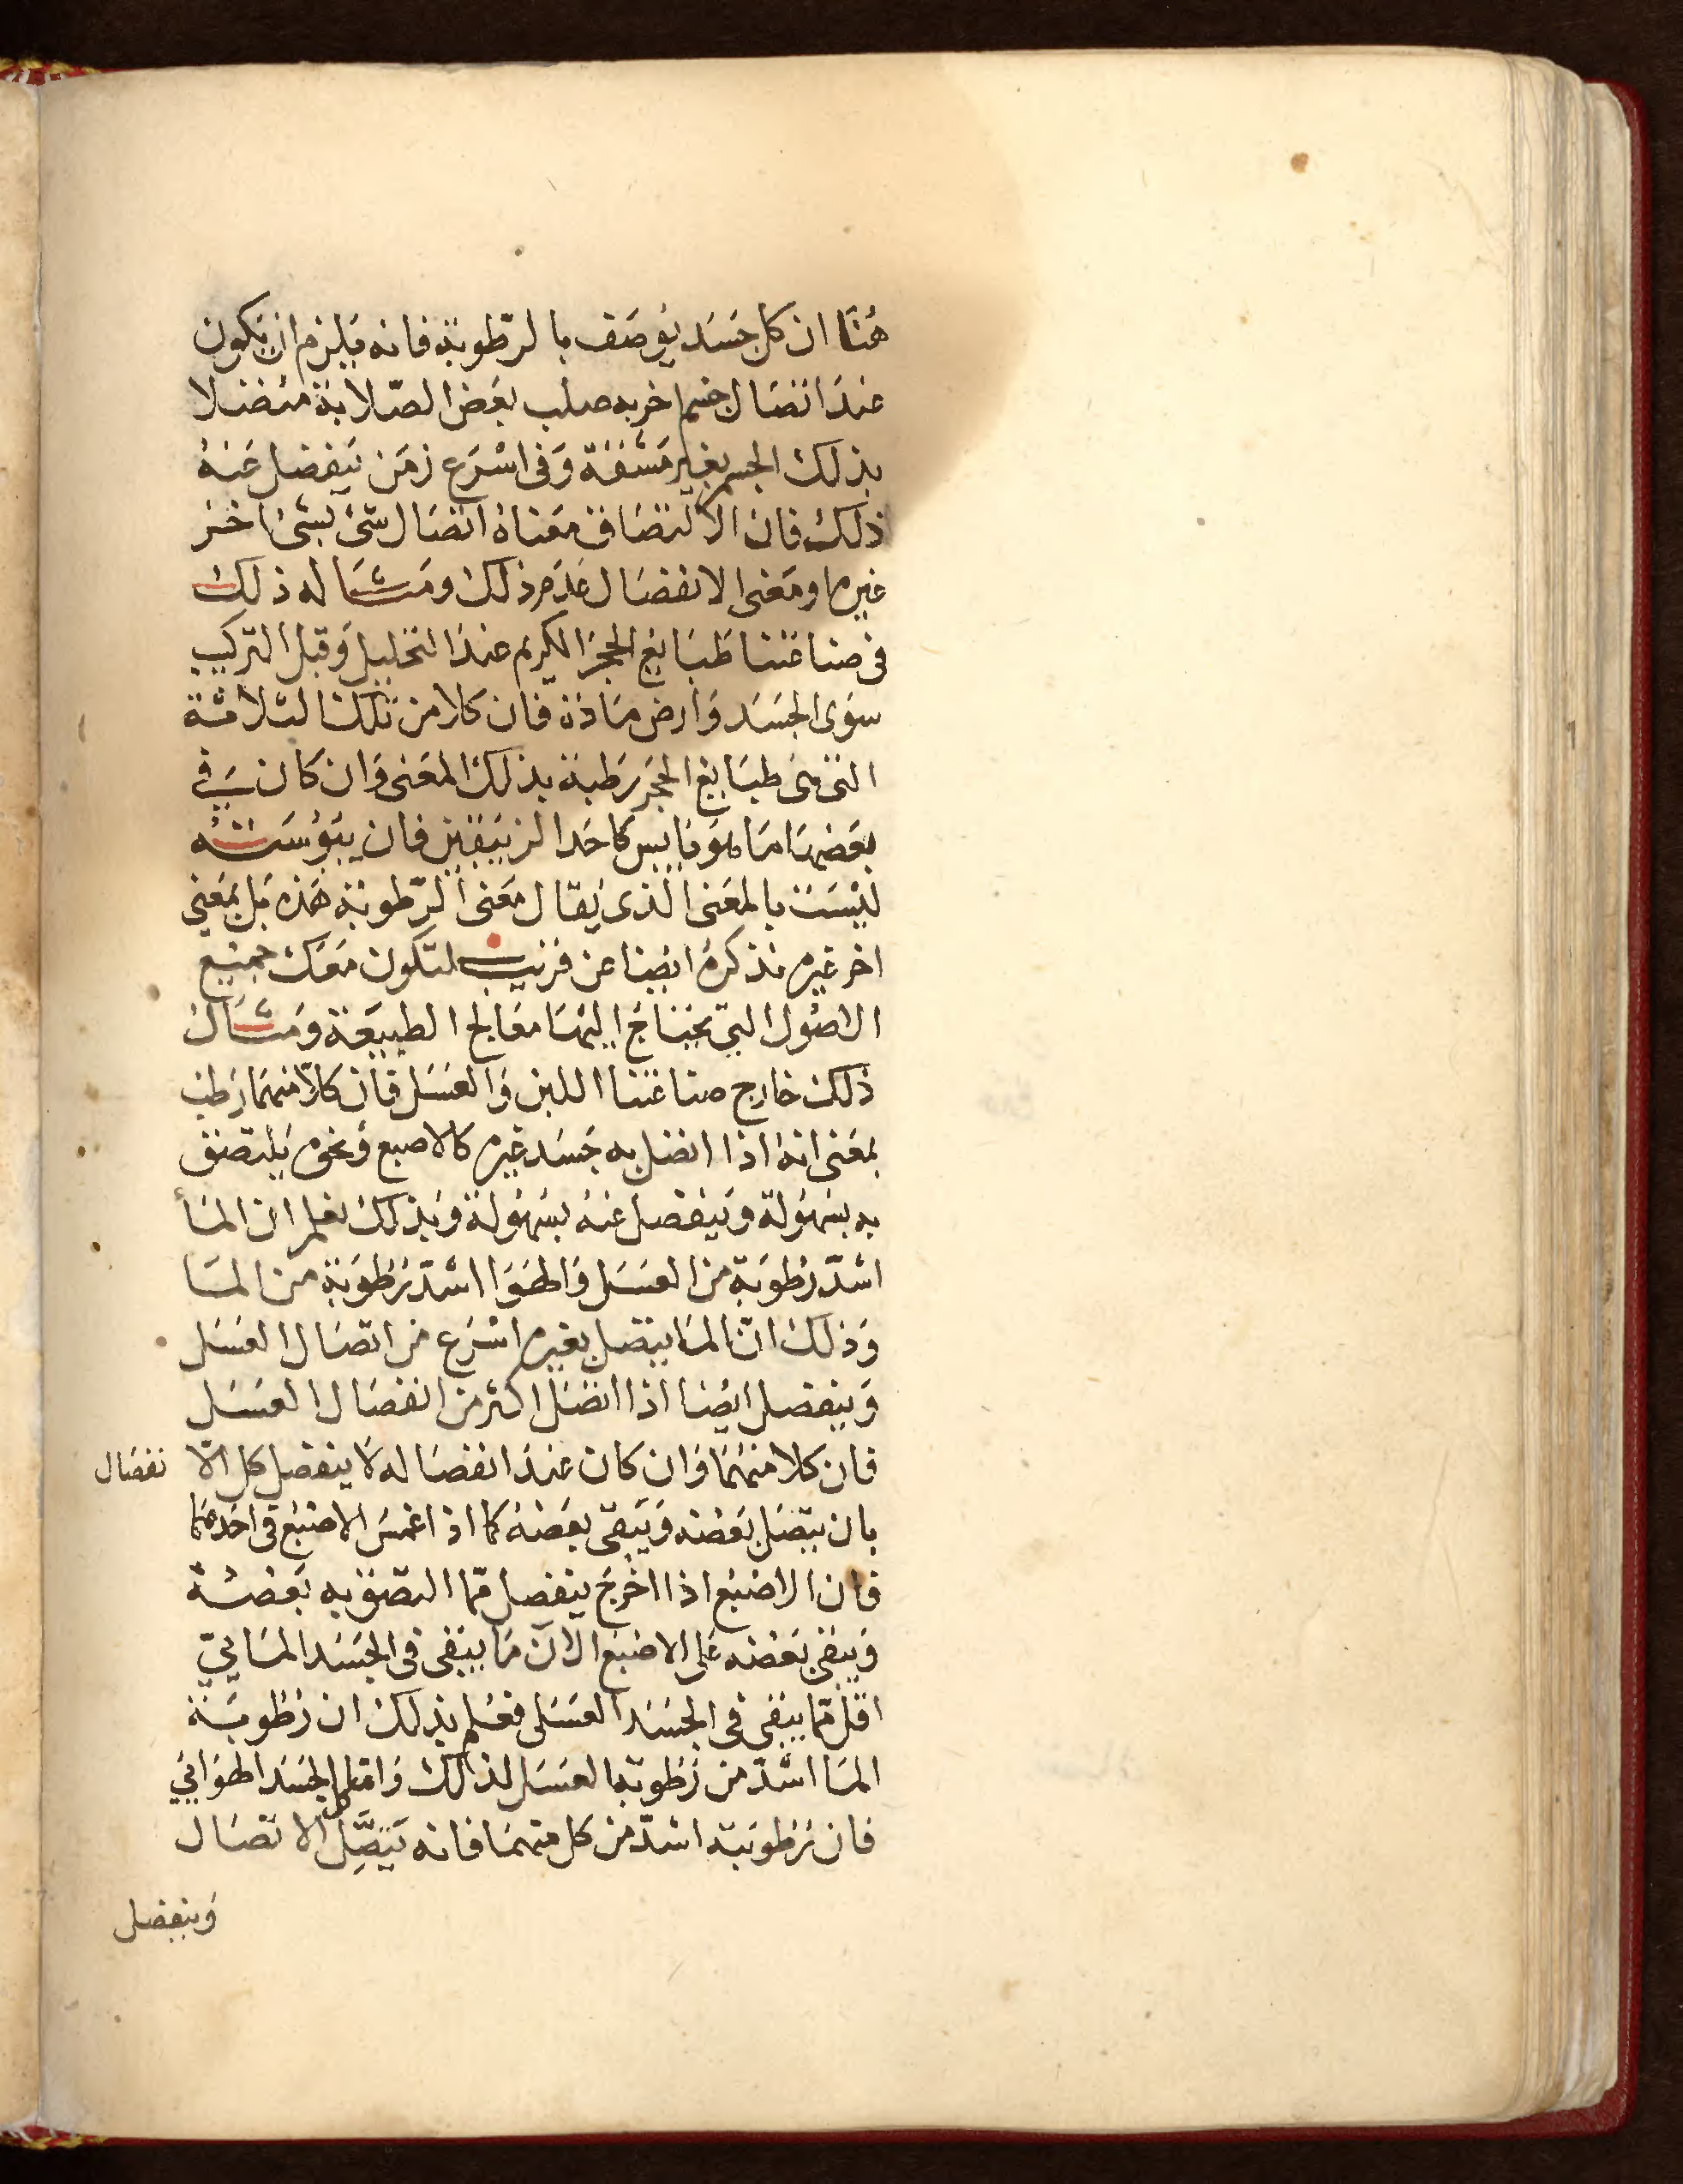 هُنَا ان كل جَسَد يُوصَف بالرّطوبة فانه يَلزم ان يَكون
عندَ اتصَال جسم اخر به صلب بعَض الصّلابة متصلا
بذلك الجسم بغير مَشقة وَفى اسْرَع زمَن يَنفصل عَنهُ
ذلك فان الالتصَاق معَناهُ اتصَال شىْ بشىْ اخر
غيره ومَعنى الانفصَال عدَم ذلك ومثَاله ذلك
فى صناعَتنا طَبَايع الحجَر الكريم عندَ التحليل وَقبل التركيب
سوَى الجسَد وَارض مَادة فان كلا من تلك الثلاثة
التى هىَ طبَايع الحجَر رَطبة بذلك المعَنى وَان كان يسَرٌ فى
بعَضهَا مَا هوَ يَابس كاحَد الزيبَقين فان يبَوُسَته
ليْسَت بالمعَنى الذى يُقال مَعنى الرّطوبة هَذه بَل بمعَنى
اخر غيره نذكرهُ ايضا عن قريب لتكون مَعَك جميع
الاصُول التى يحتاجُ اليهَا معَالج الطبيعَة ومثَال
ذلك خارج صناعَتنا اللبن وَالعسَل فان كلاّ منهمَا رَطب
بمَعنى انهُ اذا اتصل به جَسَد غيره كالاصبع وَنحوه يَلتصق
به بسُهوُلة وَينفصل عَنهُ بسُهوُلة وَبذلك نعَلم ان المَاء
اشدّ رطُوبَة من العسَل وَالهوَا اشدّ رُطوَبَة من المَا
وَذلك انّ المَا يتصل بغيره اسْرَع من اتصَال العسَل
وَينفصل ايضا اذا اتصَل اكثر من انفصَال العسَل
فان كلا منهُمَا وَان كان عندَ انفصَاله لاَ ينفصل كل الا نفصَال
بان يتصَل بعَضه وَيَبقى بعَضهُ كما اذا غمسَ الاصبَع فى احَدهمَا
فان الاصبَع اذا اخرجَ ينفصل مّما التصق به بَعضهُ
وَيبقى بَعَضه عَلى الاصْبَع الا ان مَا يبَقى فى الجسَد المَائيّ
اقل مّما يبَقى فى الجسَد العسَلى فعُلم بذلك ان رُطُوبَة
المَا اشدّ من رَطُوبة العسَل لذلك وَامّا الجسَد الهوَائيّ
فان رُطوبَته اشدّ من كل منهمَا فانه يَتصِّل كل الاتصَال
وَينفصل